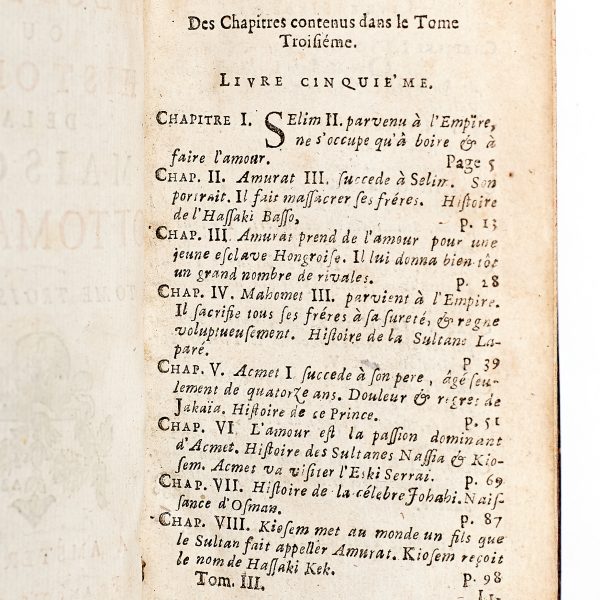 Des Chapitres contenus dans le Tome
Troisiéme.
LIVRE CINQUIE'ME.
CHAPITRE I. SElim II. parvenu à l'Empire,
ne s'occupe qu'à boire & à
faire l'amour. Page 5
CHAP. II. Amurat III. succede à Selim. Son
portrait. Il fait massacrer ses fréres. Histoire
de l'Hassaki Basso, p. 13
CHAP. III. Amurat prend de l'amour pour une
jeune esclave Hongroise. Il lui donna bien tôt
un grand nombre de rivales. p. 28
CHAP. IV. Mahomet III. parvient à l'Empire.
Il sacrifie tous ses fréres à sa sureté, & regne
voluptueusement. Histoire de la Sultane La-
paré. p. 39
CHAP. V. Acmet I succede à son pere, âgé seu-
lement de quatorze ans. Douleur & regrets de
Jakaïa. Histoire de ce Prince. p. 51
CHAP. VI. L'amour est la passion dominant
d'Acmet. Histoire des Sultanes Nassia & Kio-
sem. Acmet va visiter l'Eski Serrai. p. 69
CHAP. VII. Histoire de la célébre Johahi. Nais-
sance d'Osman. p. 87
CHAP. VIII. Kiosem met au monde un fils que
le Sultan fait appeller Amurat. Kiosem reçoit
le nom de Hassaki Kek. p. 98
Tom. III.